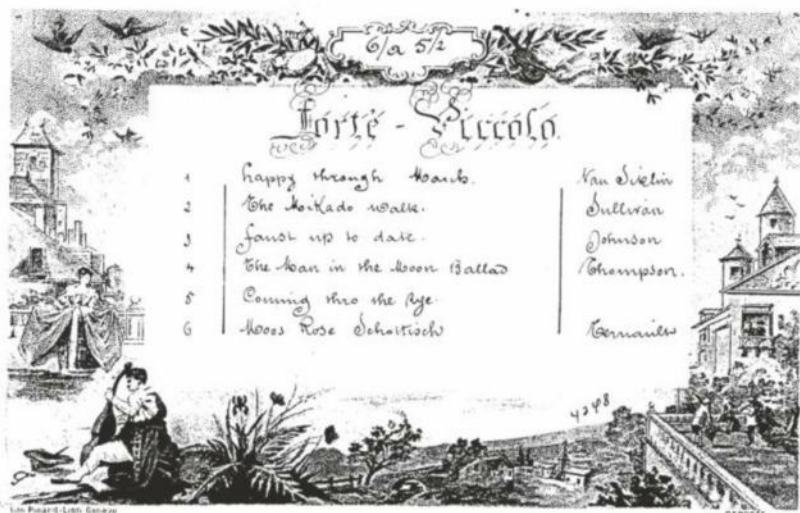 6/a 5/2
Forte - Piccolo.
1 happy through March. Van Siklin
2 The Mikado walk. Sullivan
3 faust up to date. Johnson
4 The Man in the Moon Ballad Thompson.
5 Coming thro the Rye.
6 Moos Rose Schottisch
4248